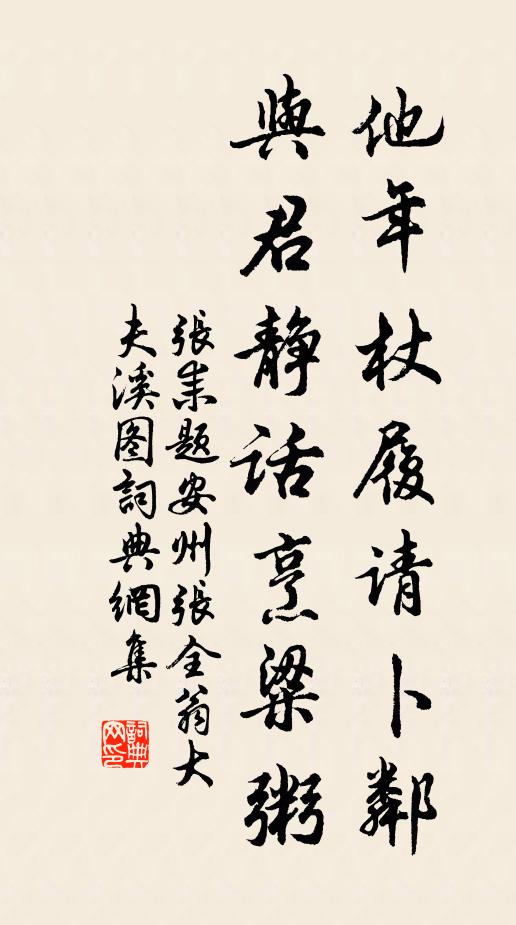 他年杖履请卜鄰
與君静话烹粱粥
張耒题安州張全翁大
夫溪图詞典網集
詞典
网印